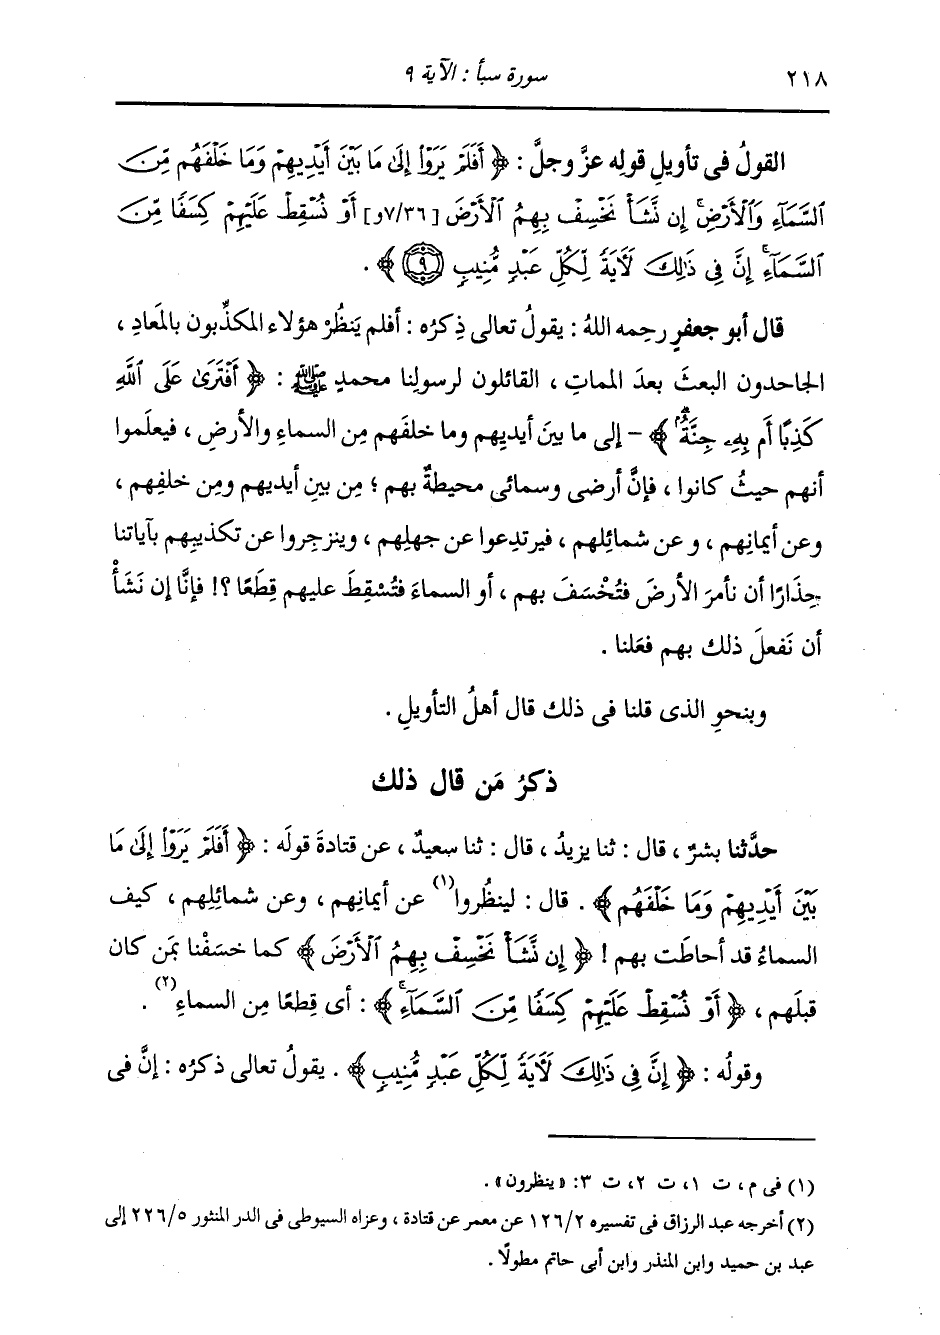 ٢١٨ سورة سبأ : الآية ٩
القولُ فى تأويلِ قولِه عزَّ وجلَّ : ﴿ أَفَلَمْ يَرَوْا إِلَىٰ مَا بَيْنَ أَيْدِيهِمْ وَمَا خَلْفَهُم مِّنَ
السَّمَآءِ وَٱلْأَرْضِۚ إِن نَّشَأْ نَخْسِفْ بِهِمُ ٱلْأَرْضَ [٧/٣٦و] أَوْ نُسْقِطْ عَلَيْهِمْ كِسَفًا مِّنَ
ٱلسَّمَآءِۚ إِنَّ فِى ذَٰلِكَ لَآيَةً لِّكُلِّ عَبْدٍ مُّنِيبٍ ٩ ﴾ .
قال أبو جعفرٍ رحِمه اللهُ : يقولُ تعالى ذِكرُه : أفلم يَنظُرْ هؤلاء المكذِّبون بالمَعادِ ،
الجاحدون البعثَ بعدَ المماتِ ، القائلون لرسولِنا محمدٍ ﷺ : ﴿ أَفْتَرَىٰ عَلَى ٱللَّهِ
كَذِبًا أَم بِهِۦ جِنَّةٌۢ ﴾ - إلى ما بينَ أيديهم وما خلفَهم مِن السماءِ والأرضِ ، فيعلَموا
أنهم حيثُ كانوا ، فإنَّ أرضى وسمائى محيطةٌ بهم ؛ مِن بينِ أيديهم ومِن خلفِهم ،
وعن أيمانِهم ، وعن شمائلِهم ، فيرتدِعوا عن جهلِهم ، وينزجِروا عن تكذيبِهم بآياتنا
حِذارًا أن نأمرَ الأرضَ فتُخْسَفَ بهم ، أو السماءَ فتُسْقِطَ عليهم قِطَعًا ؟! فإنَّا إن نَشَأْ
أن نَفعلَ ذلك بهم فعَلنا .
وبنحوِ الذى قلنا فى ذلك قال أهلُ التأويلِ .
ذكرُ مَن قال ذلك
حدَّثنا بشرٌ ، قال : ثنا يزيدُ ، قال : ثنا سعيدٌ ، عن قتادةَ قولَه : ﴿ أَفَلَمْ يَرَوْا إِلَىٰ مَا
بَيْنَ أَيْدِيهِمْ وَمَا خَلْفَهُم ﴾ . قال : لينظُروا(١) عن أيمانِهم ، وعن شمائلِهم ، كيف
السماءُ قد أحاطَت بهم ! ﴿ إِن نَّشَأْ نَخْسِفْ بِهِمُ ٱلْأَرْضَ ﴾ كما خسَفْنا بمَن كان
قبلَهم ، ﴿ أَوْ نُسْقِطْ عَلَيْهِمْ كِسَفًا مِّنَ ٱلسَّمَآءِۚ ﴾ : أى قِطعًا مِن السماءِ(٢) .
وقولُه : ﴿ إِنَّ فِى ذَٰلِكَ لَآيَةً لِّكُلِّ عَبْدٍ مُّنِيبٍ ﴾ . يقولُ تعالى ذكرُه : إنَّ فى
(١) فى م ، ت ١، ت ٢، ت ٣: «ينظرون» .
(٢) أخرجه عبد الرزاق فى تفسيره ١٢٦/٢ عن معمر عن قتادة ، وعزاه السيوطى فى الدر المنثور ٢٢٦/٥ إلى
عبد بن حميد وابن المنذر وابن أبى حاتم مطولًا .